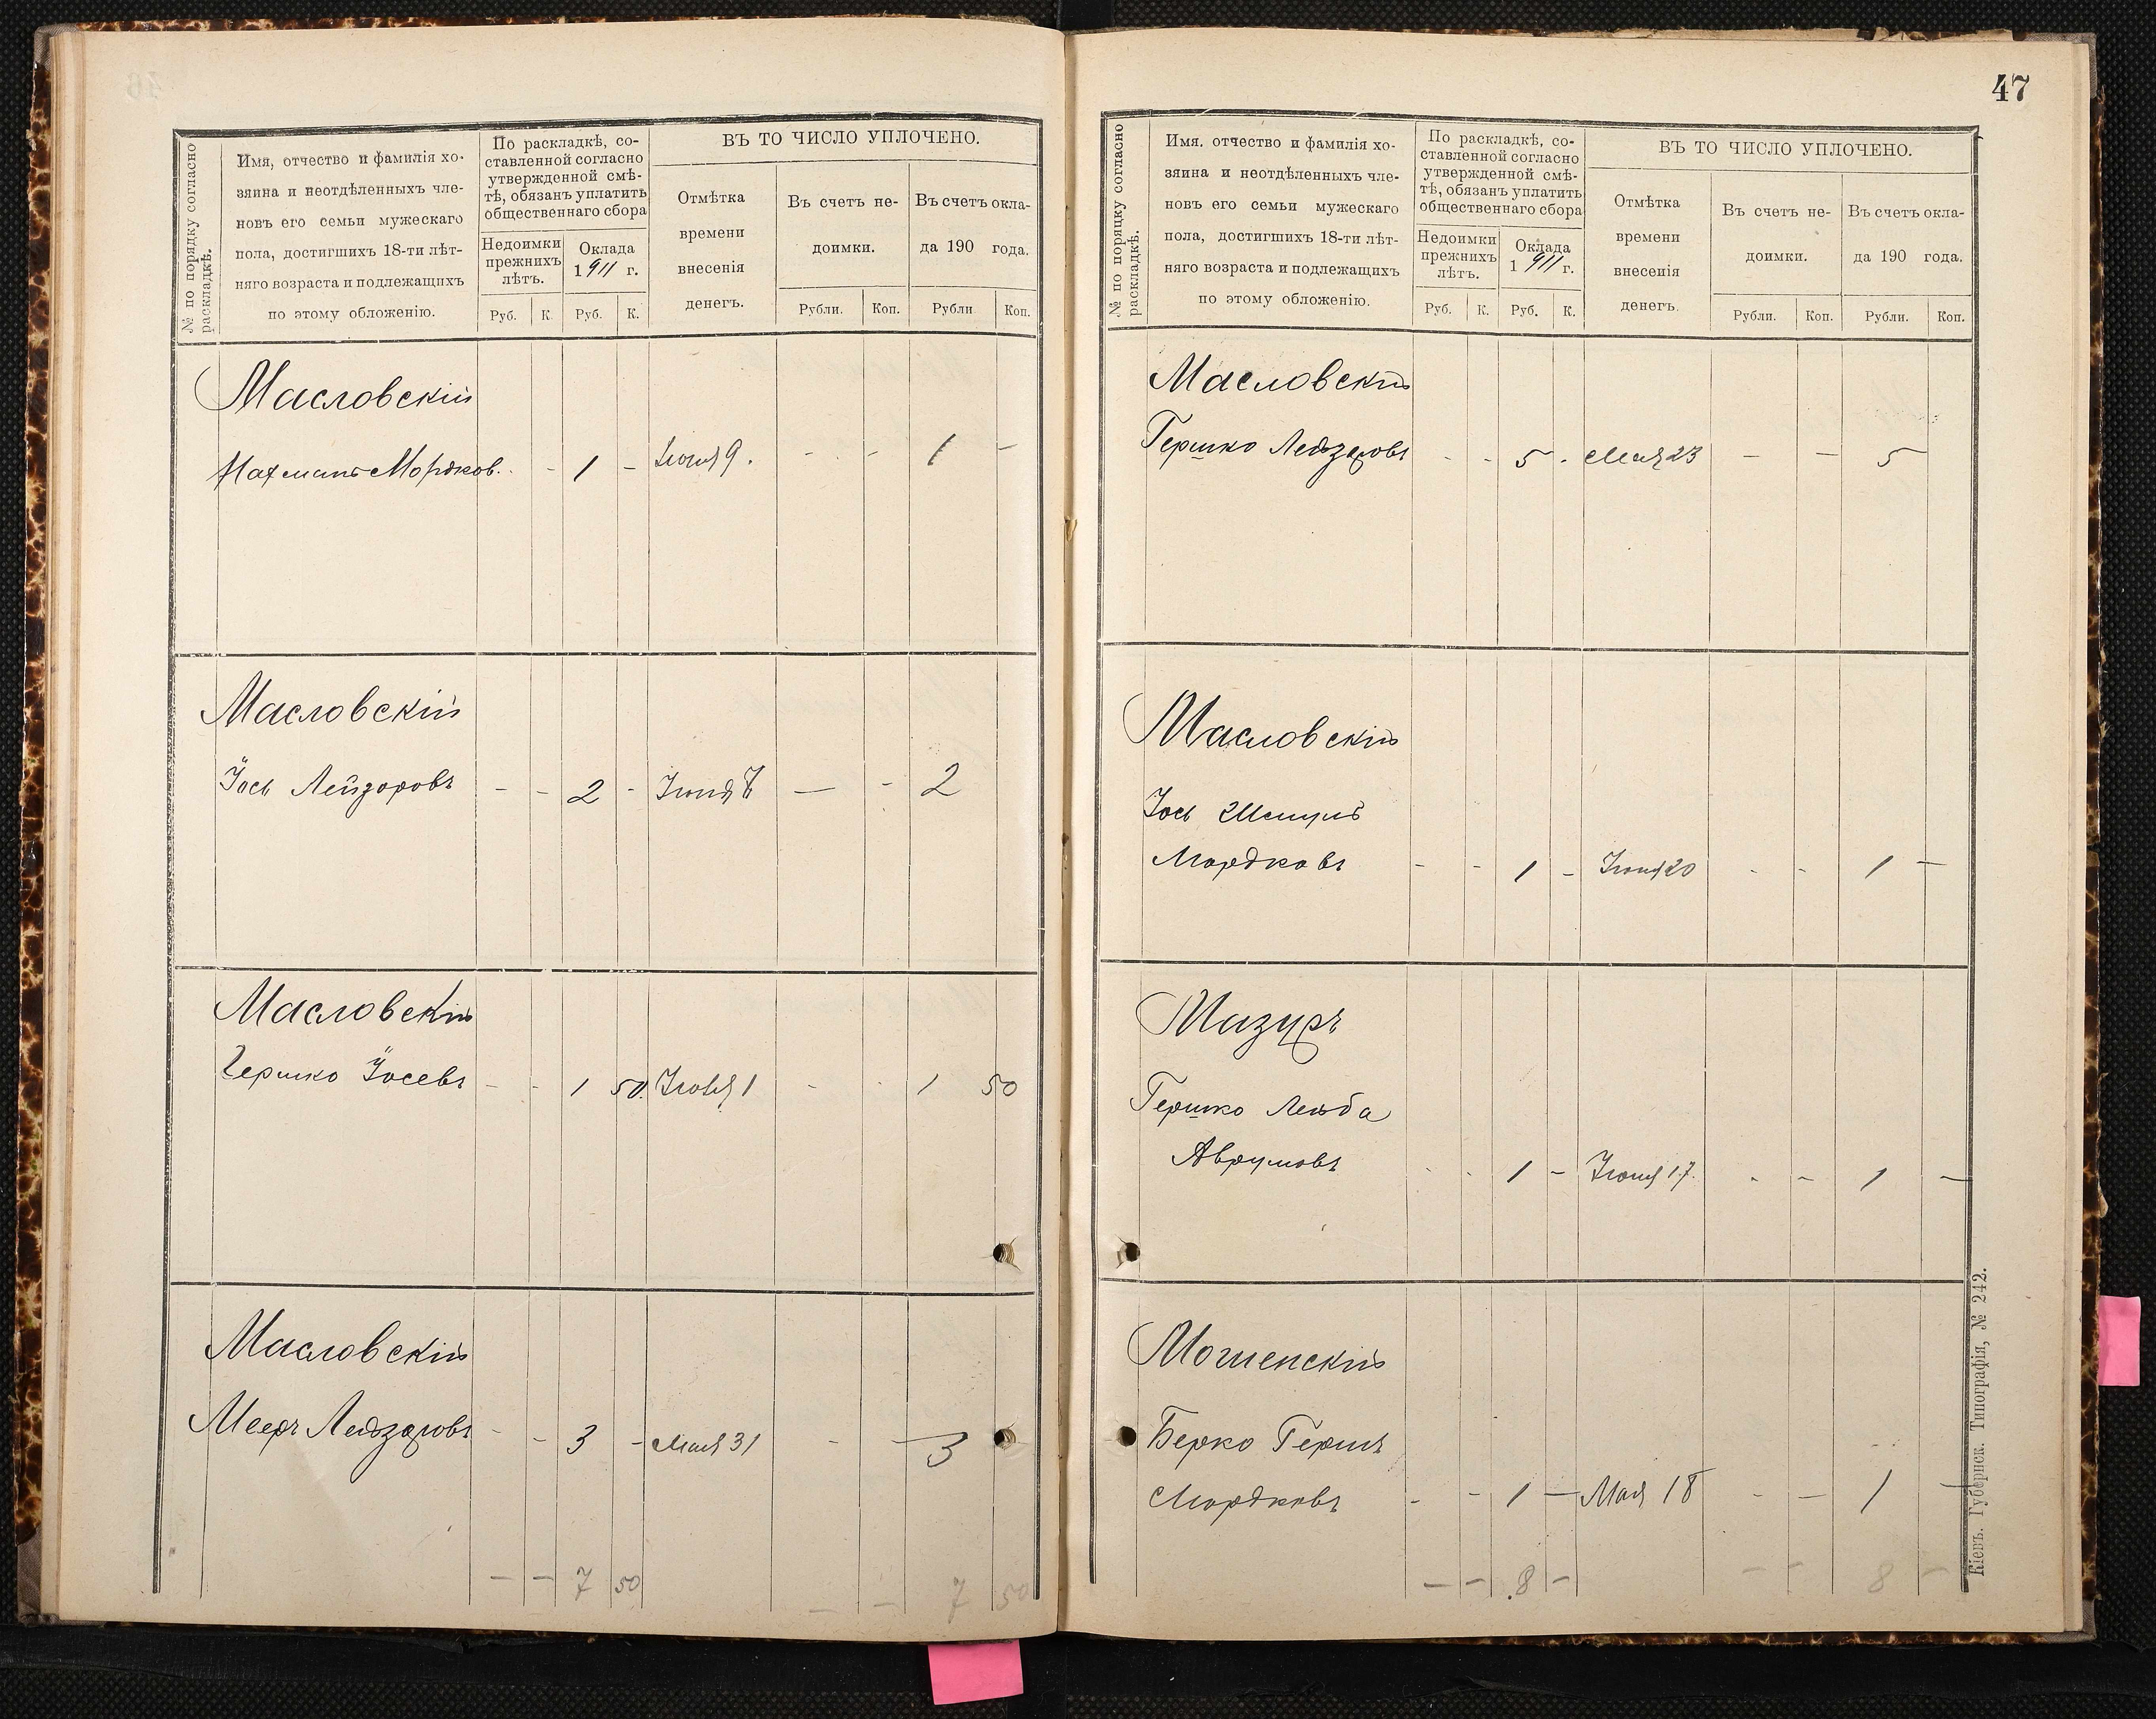 № по порядку согласно раскладкѣ.
Имя, отчество и фамилія хо-
зяина и неотдѣленныхъ чле-
новъ его семьи мужескаго
пола, достигшихъ 18-ти лѣт-
няго возраста и подлежащихъ
по этому обложенію.
По раскладкѣ, со-
ставленной согласно
утвержденной смѣ-
тѣ, обязанъ уплатить
общественнаго сбора
Недоимки
прежнихъ
лѣтъ.
Оклада
1911 г.
Руб. К. Руб. К.
ВЪ ТО ЧИСЛО УПЛОЧЕНО.
Отмѣтка
времени
внесенія
денегъ.
Въ счетъ не-
доимки.
Въ счетъ окла-
да 190 года.
Рубли. Коп. Рубли Коп.
Масловскій
Нахманъ Мордков. - 1 - 9. - - 1 -
Масловскій
Іось Лейзоровъ - - 2 - — - 2
Масловскій
Гершко Іосевъ - - 1 50 1 - - 1 50
Масловскій
Мееръ Лейзеровъ - - 3 - Мая 31 - — 3
— — 7 50 — — 7 50
47
№ по порядку согласно раскладкѣ.
Имя. отчество и фамилія хо-
зяина и неотдѣленныхъ чле-
новъ его семьи мужескаго
пола, достигшихъ 18-ти лѣт-
няго возраста и подлежащихъ
по этому обложенію.
По раскладкѣ, со-
ставленной согласно
утвержденной смѣ-
тѣ, обязанъ уплатить
общественнаго сбора
Недоимки
прежнихъ
лѣтъ.
Оклада
1911 г.
Руб. К. Руб. К.
ВЪ ТО ЧИСЛО УПЛОЧЕНО.
Отмѣтка
времени
внесенія
денегъ.
Въ счетъ не-
доимки.
Въ счетъ окла-
да 190 года.
Рубли. Коп. Рубли. Коп.
Масловскій
Гершко Лейзеровъ - - 5 - Мая 23 — — 5
Масловскій
Іось Шмулъ
Мордковъ - - 1 - Іюня 20 - - 1 —
Мазуръ
Гершко Лейба
Аврумовъ - - 1 - Іюня 17. - - 1 —
Мошенскій
Берко Гершъ
Мордковъ - - 1 — Мая 18 - — 1 —
— — 8 — — — 8 —
Кіевъ. Губернск. Типографія, № 242.